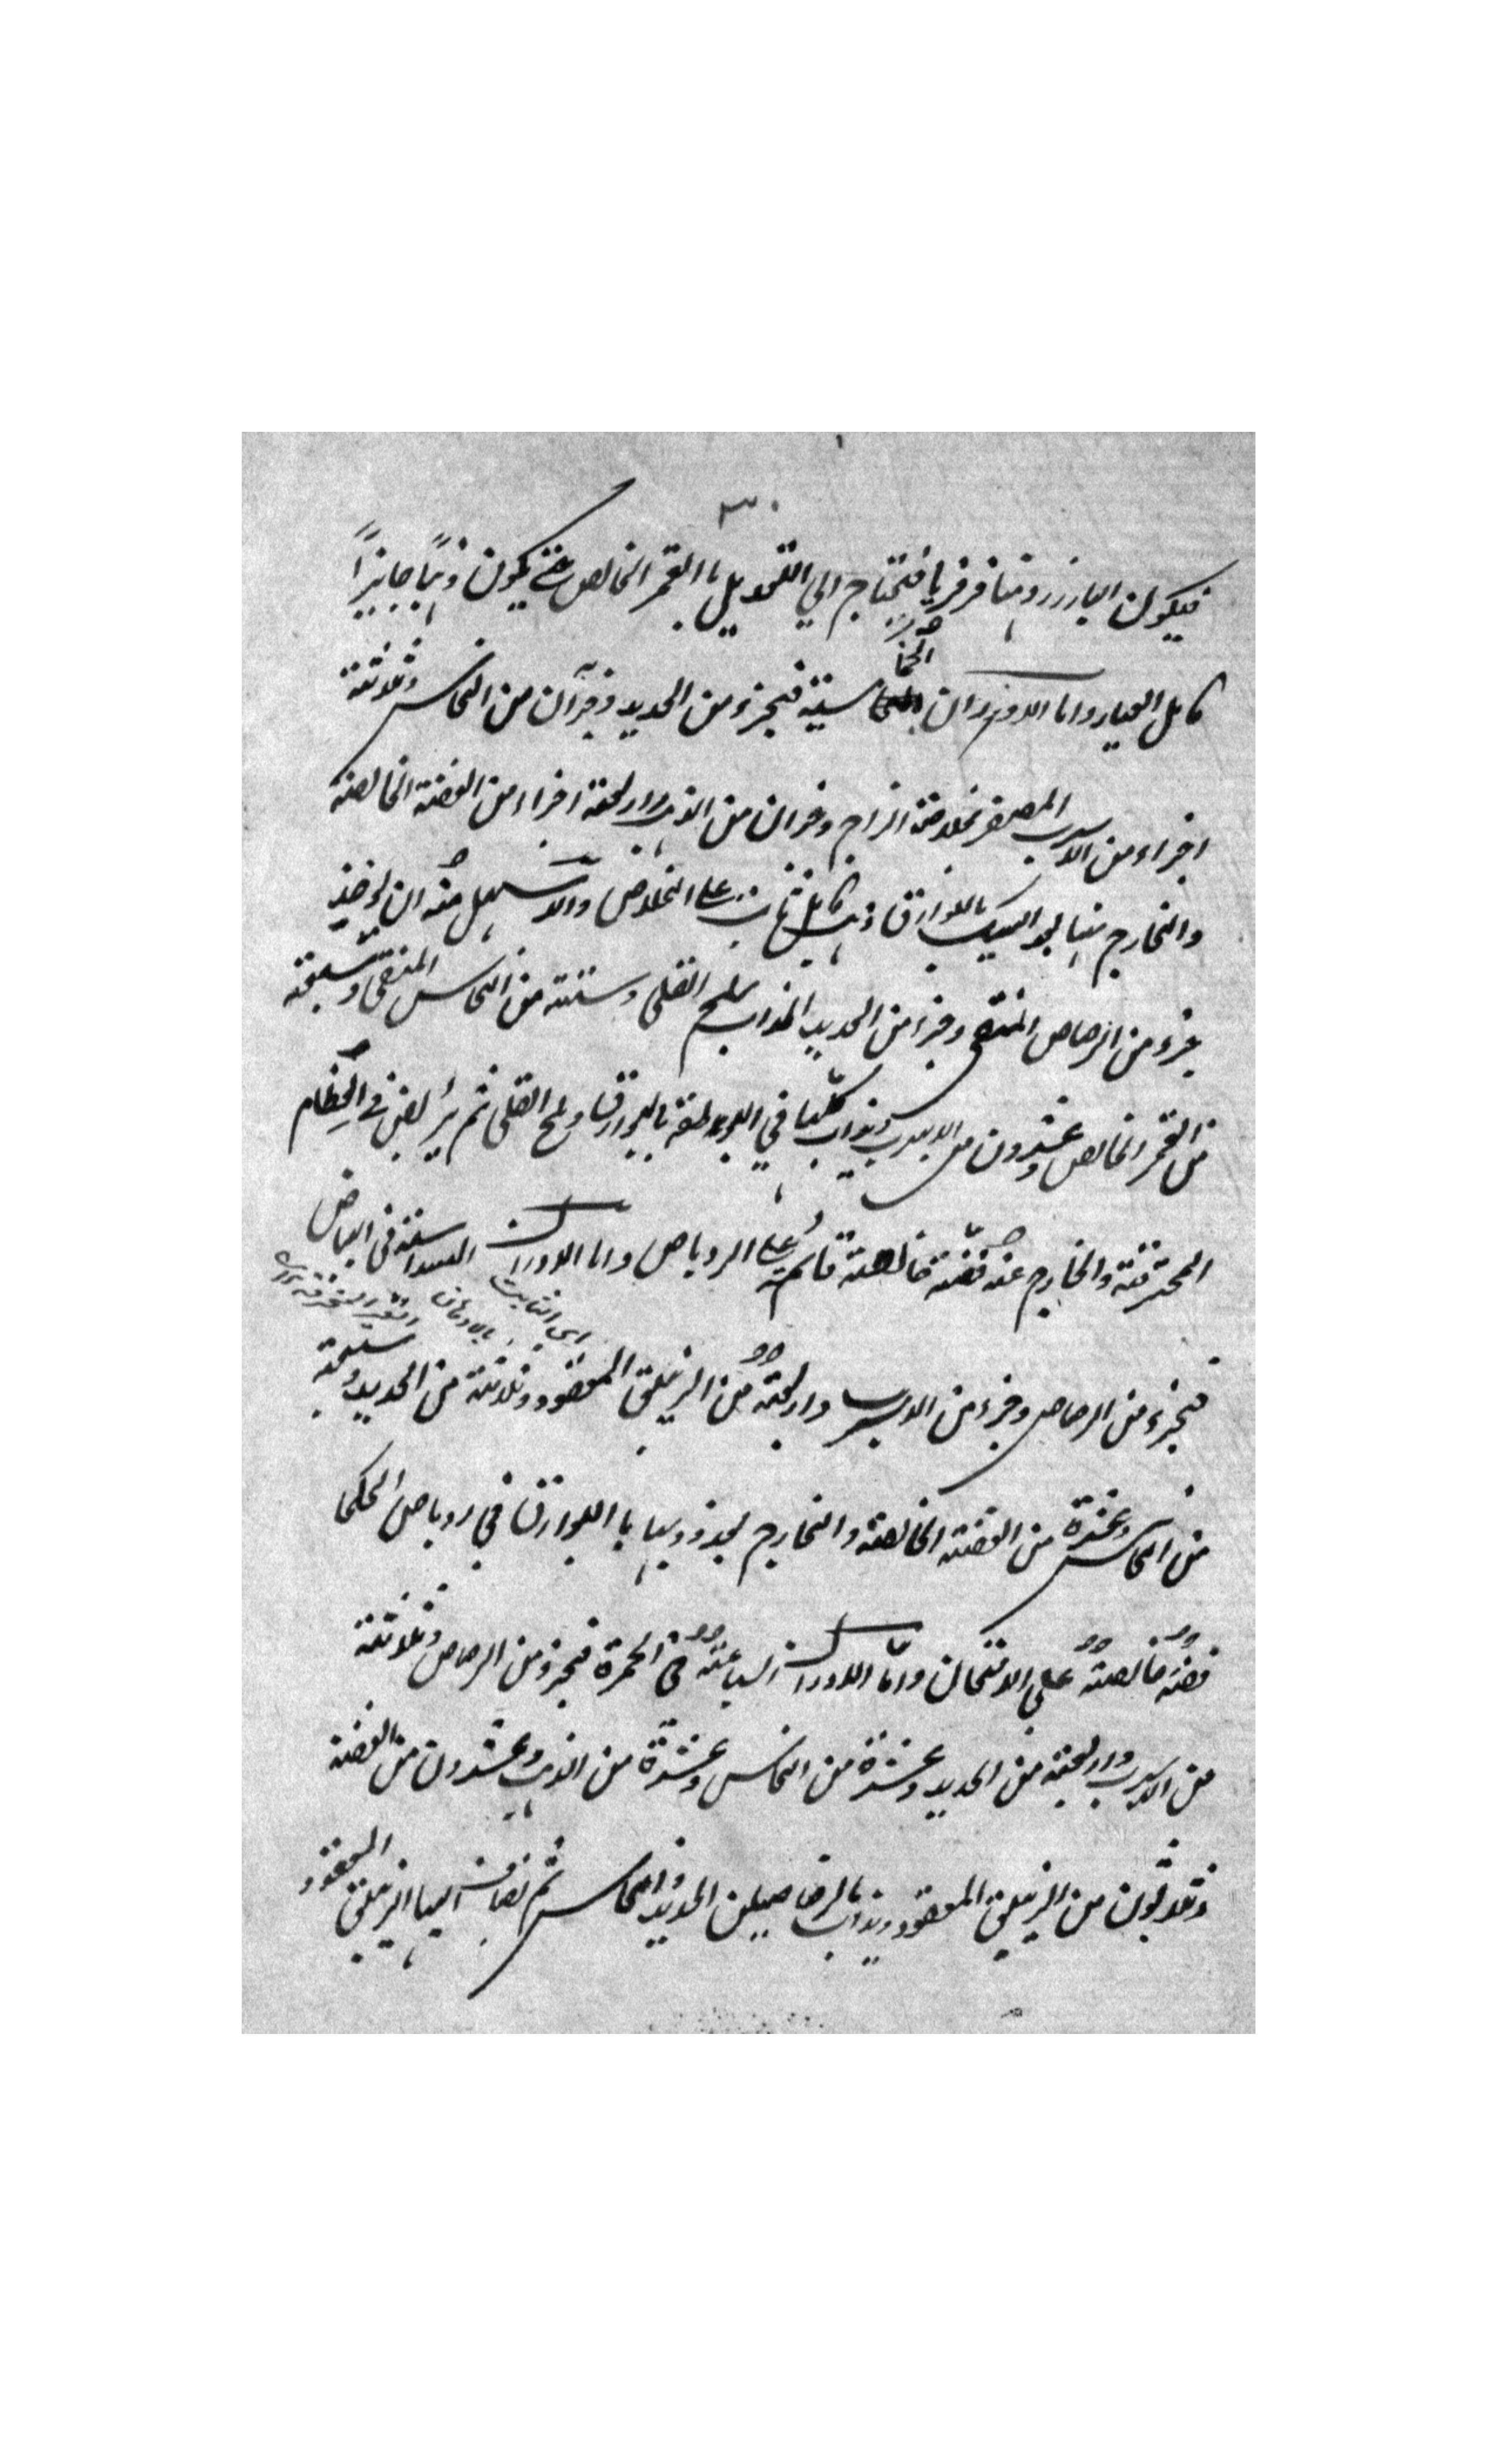 ٣٠
فيكون البارز ذهبًا فرفريا فيحتاج الي التعديل بالقمر الخالص حتى يكون ذهبًا جايزًا
كامل العيار واما الاوزان الخماسية فجزء من الحديد وجزآن من النحاس وثلاثة
اجزاء من الاسرب المصفر بخلاصة الزاج وجزان من الذهب واربعة اجزاء من الفضة الخالصة
والخارج منها بعد السبك بالبوارق ذهب كامل ثابت على الخلاص والاسهل منه ان يؤخذ
جزء من الرصاص المنقى وجزء من الحديد المذاب بملح القلى وستة من النحاس المنقى وسبعة
من القمر الخالص وعشرون من الاسرب ويذاب كلها في البوطقة بالبوارق وملح القلى ثم يرابص في العظام
المحترقة والخارج عنه فضة خالصة قائمة على الروباص واما الاوزان السداسية في البياض
اي الثابت بالادهان
فجزء من الرصاص وجزء من الاسرب واربعة من الزيبق المعقود وثلاثة من الحديد وسبعة
من النحاس وعشرة من الفضة الخالصة والخارج بعد ذوبها باالبوارق في روباص الحكما
فضة خالصة على الامتحان وامّا الاوزان السباعية في الحمرة فجزء من الرصاص وثلاثة
من الاسرب واربعة من الحديد وعشرة من النحاس وعشرة من الذهب وعشرون من الفضة
وثلاثون من الزيبق المعقود ويذاب بالرصاصين الحديد والنحاس ثم يضاف اليها الزيبق المعقود